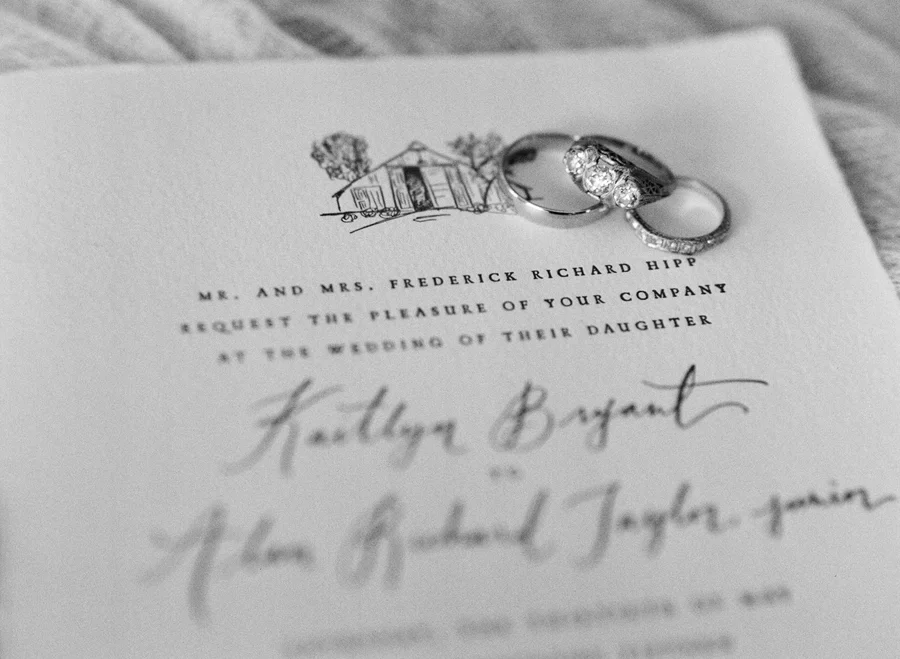 MR. AND MRS. FREDERICK RICHARD HIPP
REQUEST THE PLEASURE OF YOUR COMPANY
AT THE WEDDING OF THEIR DAUGHTER
Kaitlyn Bryant
to
Richard Taylor, junior